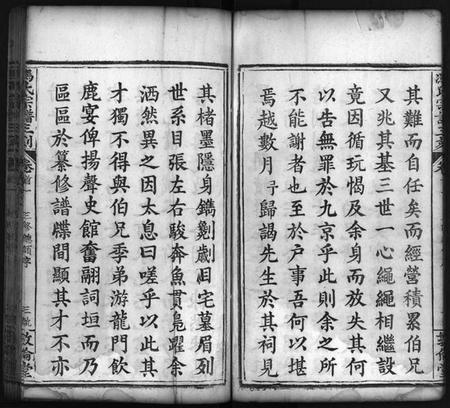 其難而自任矣而經營積累伯兄
又兆其基三世一心繩繩相繼設
竟因循玩愒及余身而放失其何
以告無罪於九京乎此則余之所
不能謝者也至於户事吾何以堪
焉越數月予歸謁先生於其祠見
其楮墨隱身鐫劂歲目宅墓眉列
世系目張左右駿奔魚貫鳧躍余
洒然異之因太息曰嗟乎以此其
才獨不得與伯兄季弟游龍門飲
鹿宴俾揚聲史館奮翮詞垣而乃
區區於纂修譜牒間顯其才不亦
馮氏宗譜三刻
卷首
三修總類序
敦倫堂